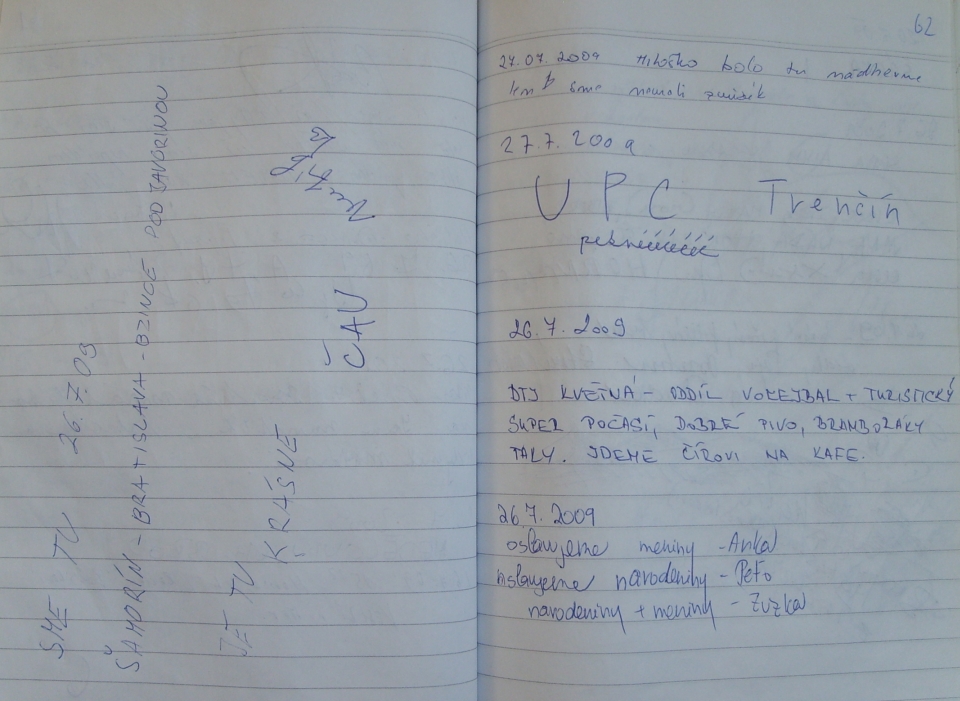 SME TU 26.7.09
ŠAMORÍN - BRATISLAVA - BZINCE POD JAVORINOU
JE TU KRÁSNE
ČAU
62
27.07.2009 bolo tu nádherne
sme
27.7.2009
UPC Trenčín
peknééééééé
26.7.2009
DTJ KVĚTNÁ - ODDÍL VOLEJBAL + TURISTICKÝ
SUPER POČASÍ, DOBRÉ PIVO, BRAMBORÁKY
TALY. JDEME ČÍROVI NA KAFE.
26.7.2009
oslavujeme meniny - Anka
oslavujeme narodeniny - Peťo
narodeniny + meniny - Zuzka